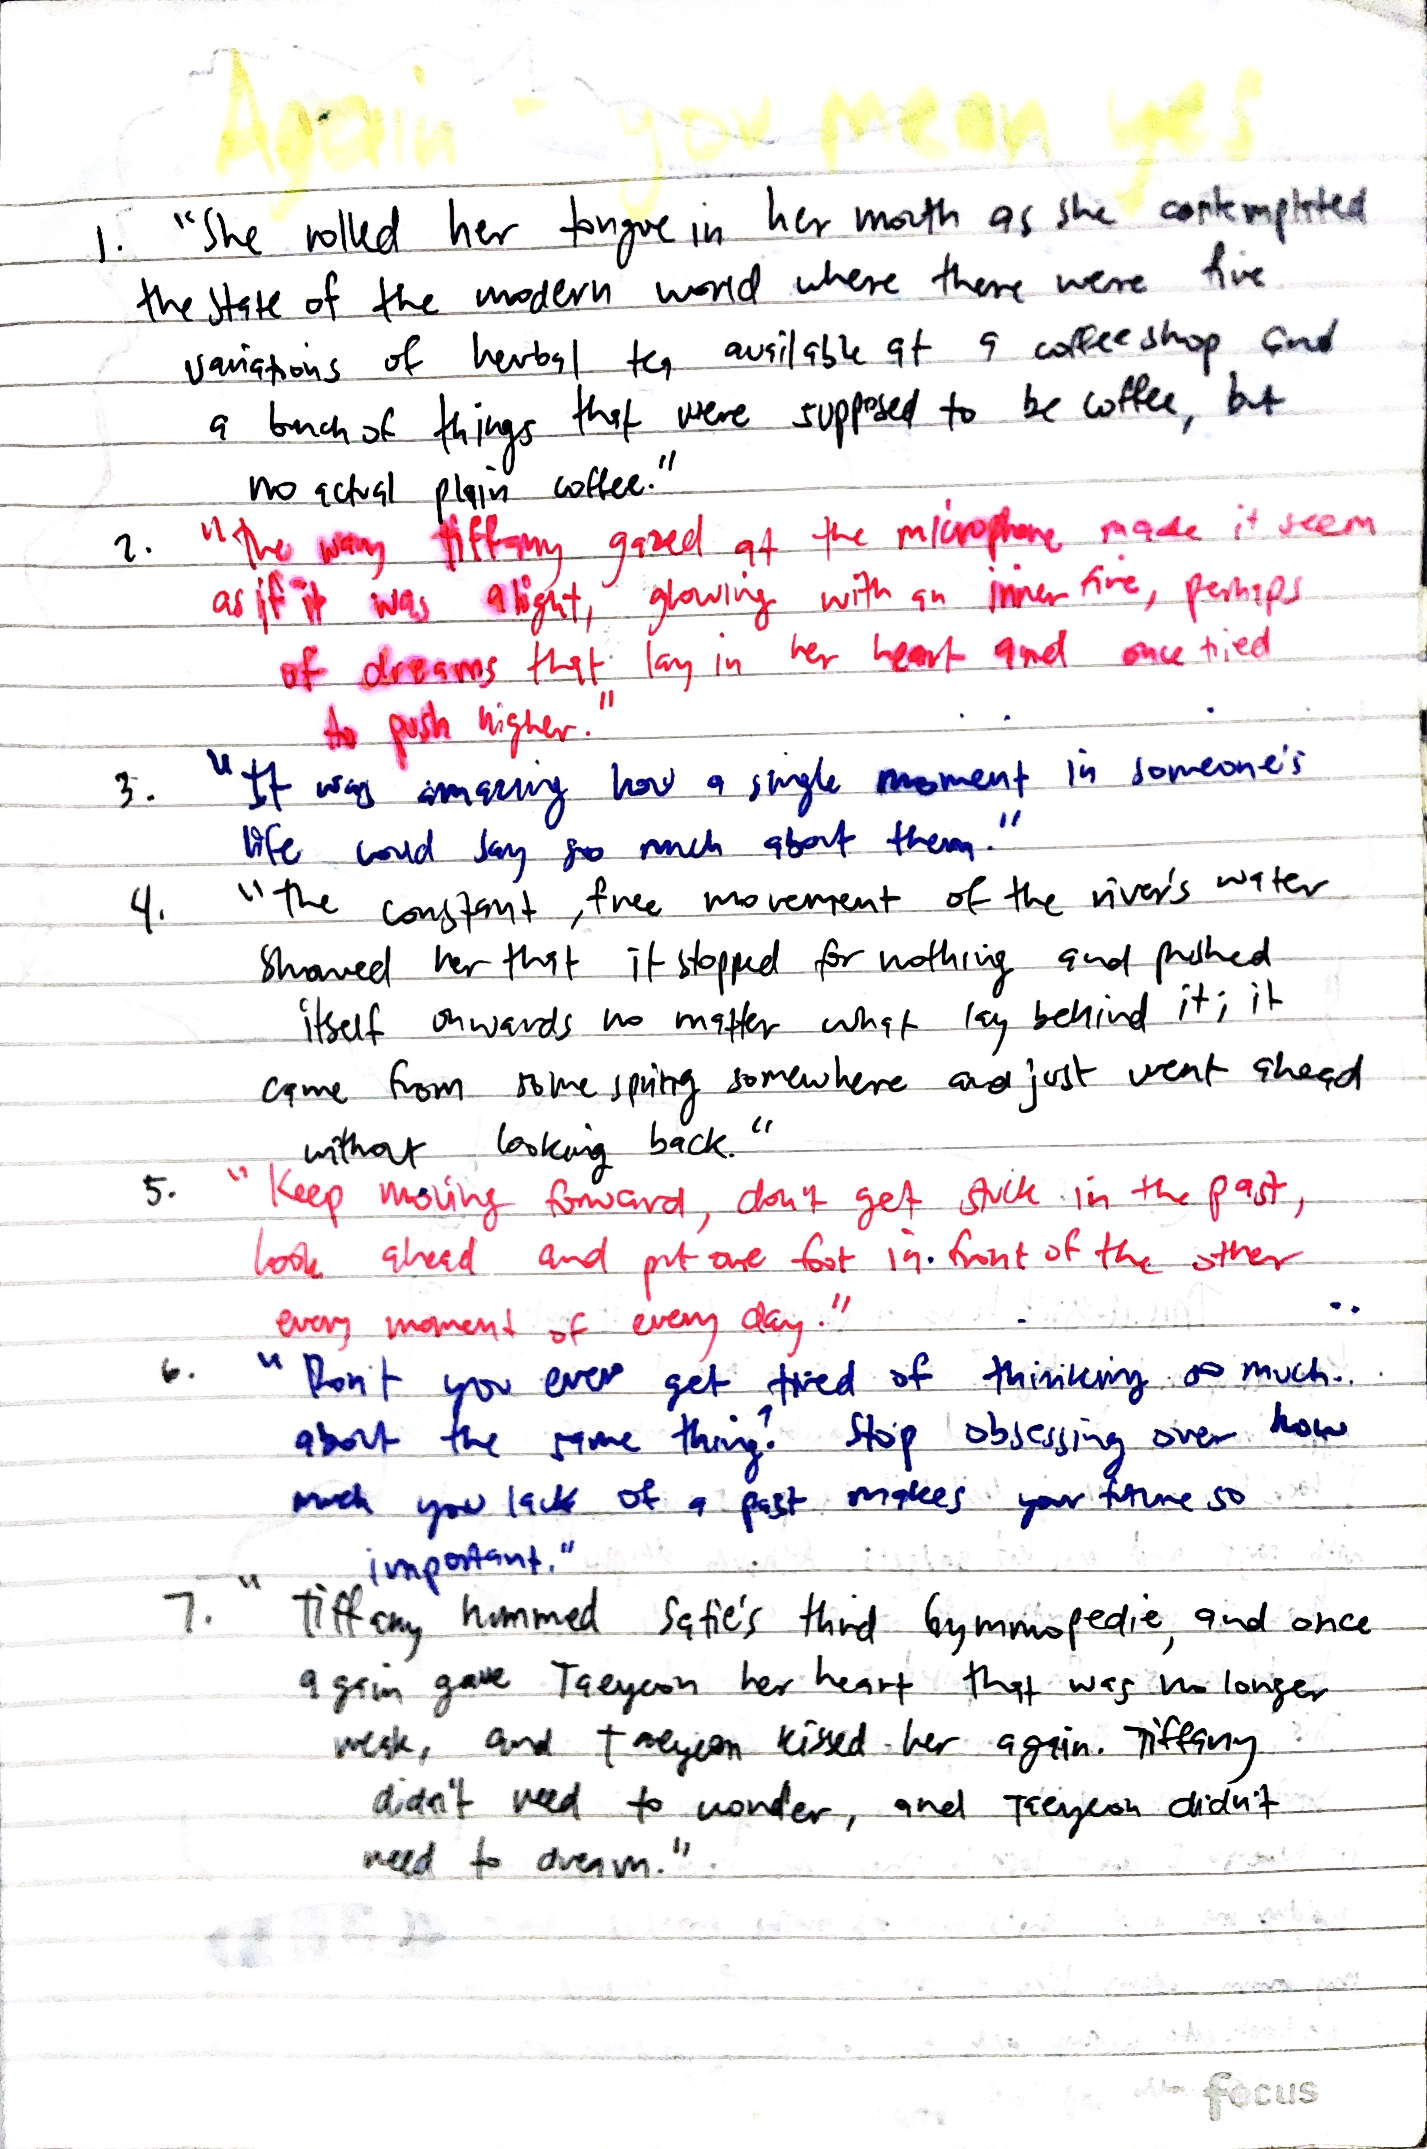 Again - you mean yes
1. "She rolled her tongue in her mouth as she contemplated
the state of the modern world where there were five
variations of herbal tea available at a coffee shop and
a bunch of things that were supposed to be coffee, but
no actual plain coffee."
2. "The way Tiffany gazed at the microphone made it seem
as if it was alight, glowing with an inner fire, perhaps
of dreams that lay in her heart and once tried
to push higher."
3. "It was amazing how a single moment in someone's
life could say so much about them."
4. "The constant, free movement of the river's water
showed her that it stopped for nothing and pushed
itself onwards no matter what lay behind it; it
came from some spring somewhere and just went ahead
without looking back."
5. "Keep moving forward, don't get stuck in the past,
look ahead and put one foot in front of the other
every moment of every day."
6. "Don't you ever get tired of thinking so much
about the same thing? Stop obsessing over how
much you lack of a past makes your future so
important."
7. "Tiffany hummed Satie's third Gymmopedie, and once
again gave Taeyeon her heart that was no longer
weak, and Taeyeon kissed her again. Tiffany
didn't need to wonder, and Taeyeon didn't
need to dream."
focus